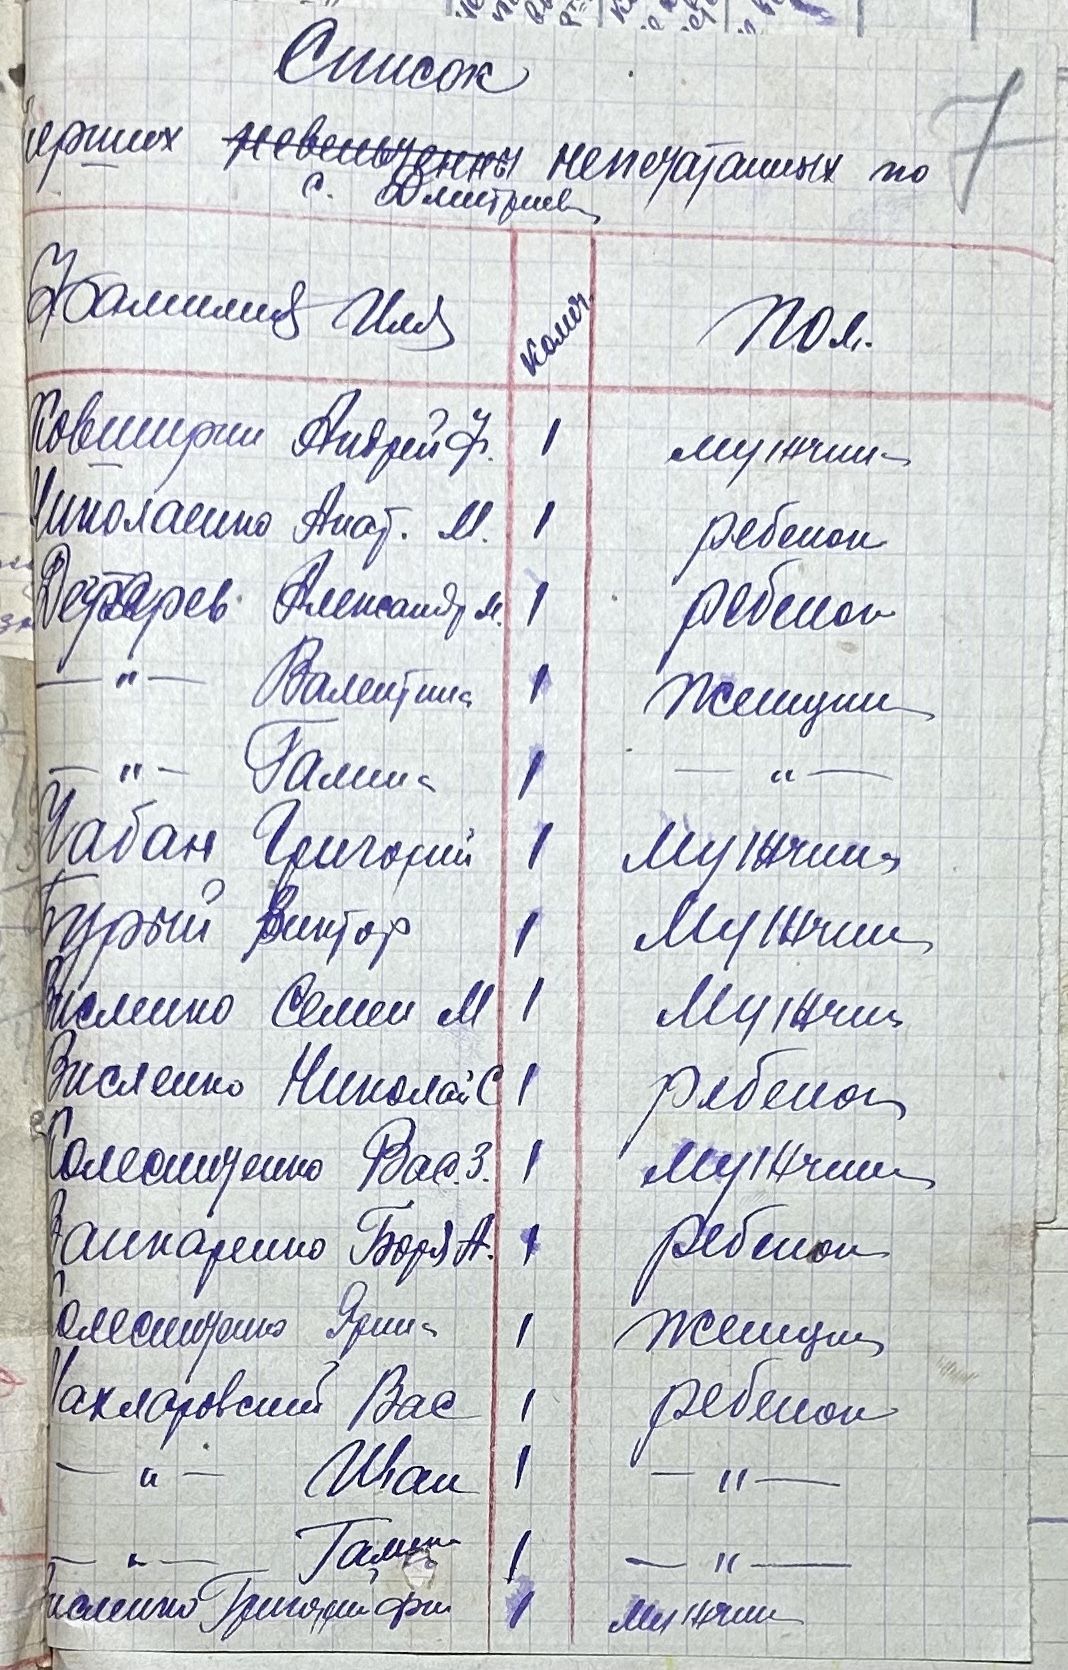 Список
мерших невенчены непечатанных по
с. Дмитриев
7
Фамилия Имя колич. Пол.
Ковширин Андрей Ф. 1 мужчин
Николаенко Анат. М. 1 ребенок
Дегтарев Александр М. 1 ребенок
— " — Валентина 1 женщин
— " — Галина 1 — " —
Чабан Григорий 1 Мужчин
Бурый Виктор 1 Мужчин
Висленко Семен М 1 Мужчин
Висленко Николай С 1 ребенок
Солесниченко Вас. З. 1 Мужчин
Ванкаренко Боря А. 1 ребенок
Солесниченко Ярина 1 женщин
Чахларовский Вас 1 ребенок
— " — Иван 1 — " —
— " — Галина 1 — " —
Висленко Григорий 1 мужчин